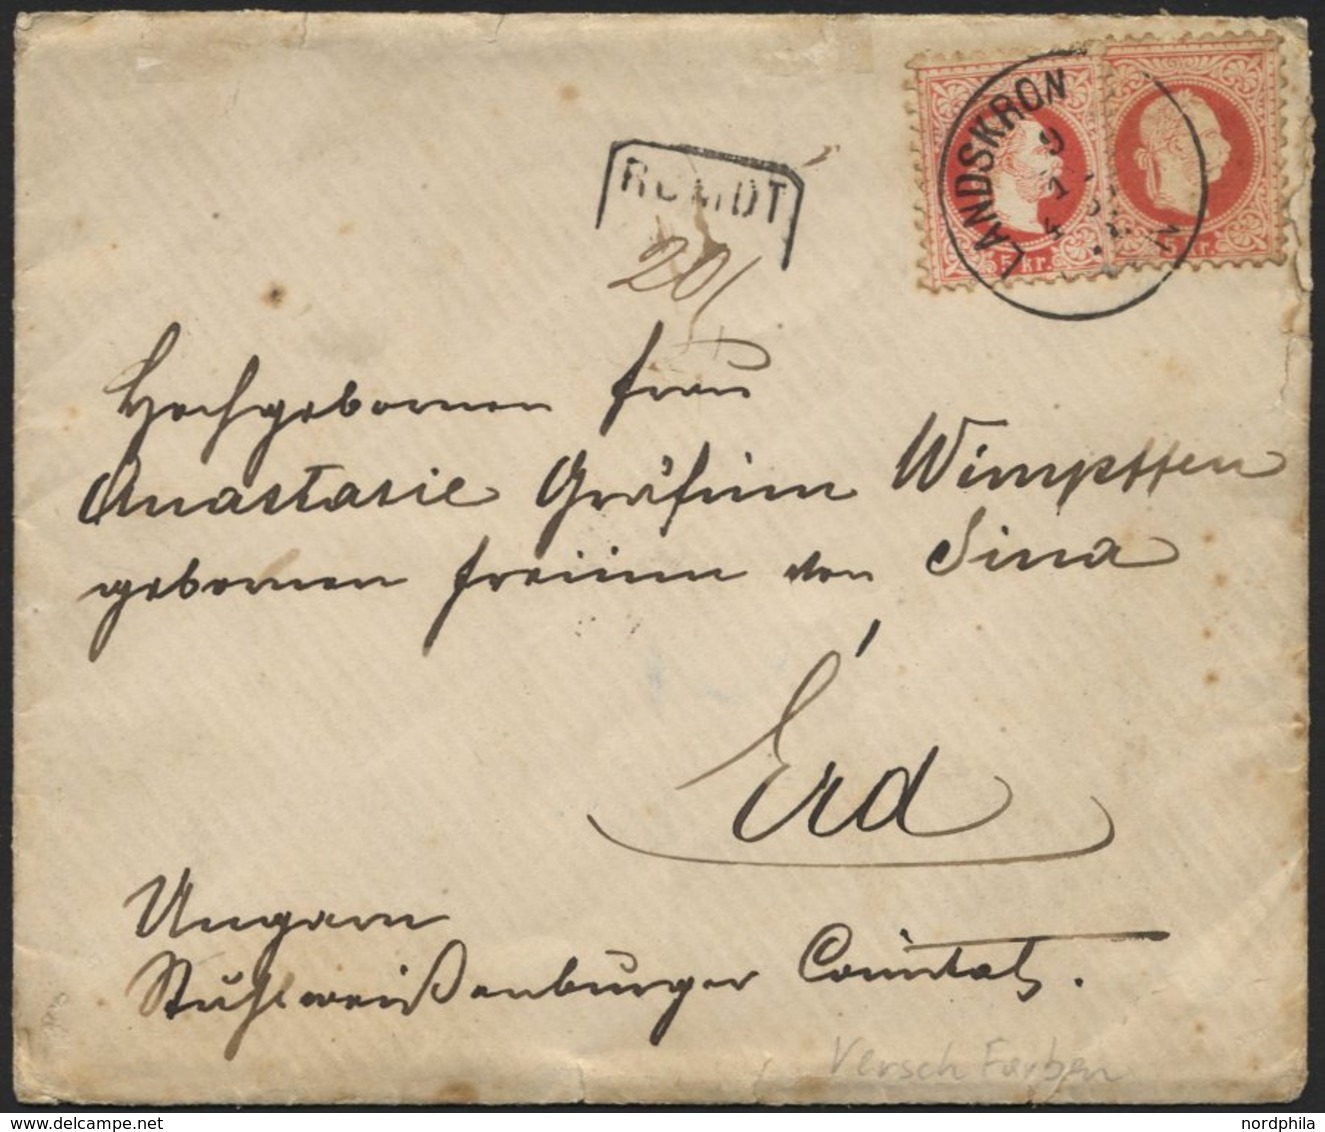 LANDSKRON
5 kr.
5 kr.
RCMDT
201
Hochgebornen Frau
Anastasie Gräfinn Wimpffen
gebornen Freiinn von Sina
Érd
Ungarn
Stuhlweißenburger Comitat.
Versch Farben
nordphila